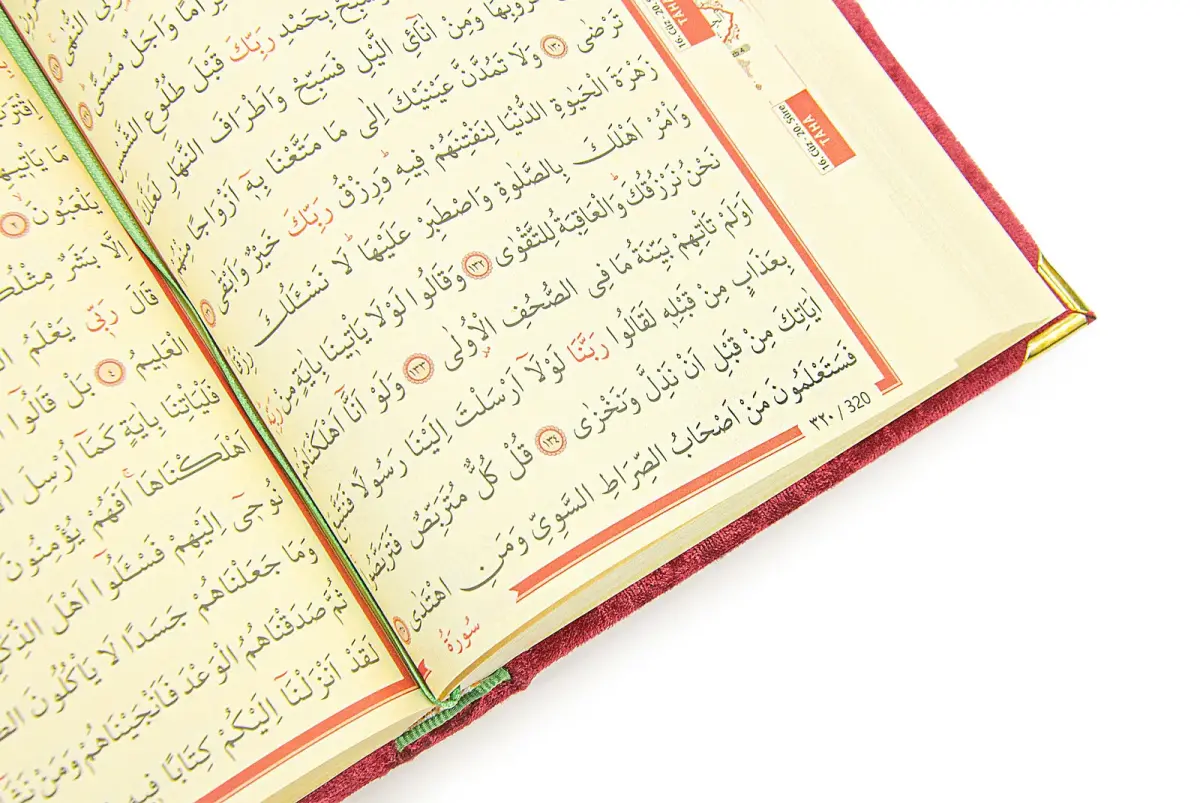 رَامًا وَاَجَلٌ مُسَمًّى
وَسَبِّحْ بِحَمْدِ رَبِّكَ قَبْلَ طُلُوعِ
وَمِنْ اٰنَٓائِ الَّيْلِ فَسَبِّحْ وَاَطْرَافَ النَّهَارِ
تَرْضٰى ١٣٠ وَلَا تَمُدَّنَّ عَيْنَيْكَ اِلٰى مَا مَتَّعْنَا بِهٖٓ اَزْوَاجًا
زَهْرَةَ الْحَيٰوةِ الدُّنْيَا لِنَفْتِنَهُمْ فٖيهِ وَرِزْقُ رَبِّكَ خَيْرٌ وَاَبْقٰى
وَأْمُرْ اَهْلَكَ بِالصَّلٰوةِ وَاصْطَبِرْ عَلَيْهَا لَا نَسْـَٔلُكَ
نَحْنُ نَرْزُقُكَ وَالْعَاقِبَةُ لِلتَّقْوٰى ١٣٢ وَقَالُوا لَوْلَا يَأْتٖينَا بِاٰيَةٍ مِنْ
اَوَلَمْ تَأْتِهِمْ بَيِّنَةُ مَا فِي الصُّحُفِ الْاُولٰى ١٣٣ وَلَوْ اَنَّٓا اَهْلَكْنَاهُمْ
بِعَذَابٍ مِنْ قَبْلِهٖ لَقَالُوا رَبَّنَا لَوْلَٓا اَرْسَلْتَ اِلَيْنَا رَسُولًا
اٰيَاتِكَ مِنْ قَبْلِ اَنْ نَذِلَّ وَنَخْزٰى ١٣٤ قُلْ كُلٌّ مُتَرَبِّصٌ
فَسَتَعْلَمُونَ مَنْ اَصْحَابُ الصِّرَاطِ السَّوِيِّ وَمَنِ اهْتَدٰى
سُورَةُ
٣٢٠ / 320
16. Cüz - 20.
TAHA
16. Cüz - 20. Sûre
TAHA
مَا يَأْتٖيهِمْ
يَلْعَبُونَ ٢
اِلَّا بَشَرٌ مِثْلُكُمْ
قَالَ رَبّٖي يَعْلَمُ
الْعَلٖيمُ ٤ بَلْ قَالُٓوا
فَلْيَأْتِنَا بِاٰيَةٍ كَمَٓا اُرْسِلَ
اَهْلَكْنَاهَا اَفَهُمْ يُؤْمِنُونَ
نُوحٖٓي اِلَيْهِمْ فَسْـَٔلُٓوا اَهْلَ الذِّكْرِ
وَمَا جَعَلْنَاهُمْ جَسَدًا لَا يَأْكُلُونَ
ثُمَّ صَدَقْنَاهُمُ الْوَعْدَ فَاَنْجَيْنَاهُمْ وَمَنْ
لَقَدْ اَنْزَلْنَٓا اِلَيْكُمْ كِتَابًا فٖيهِ